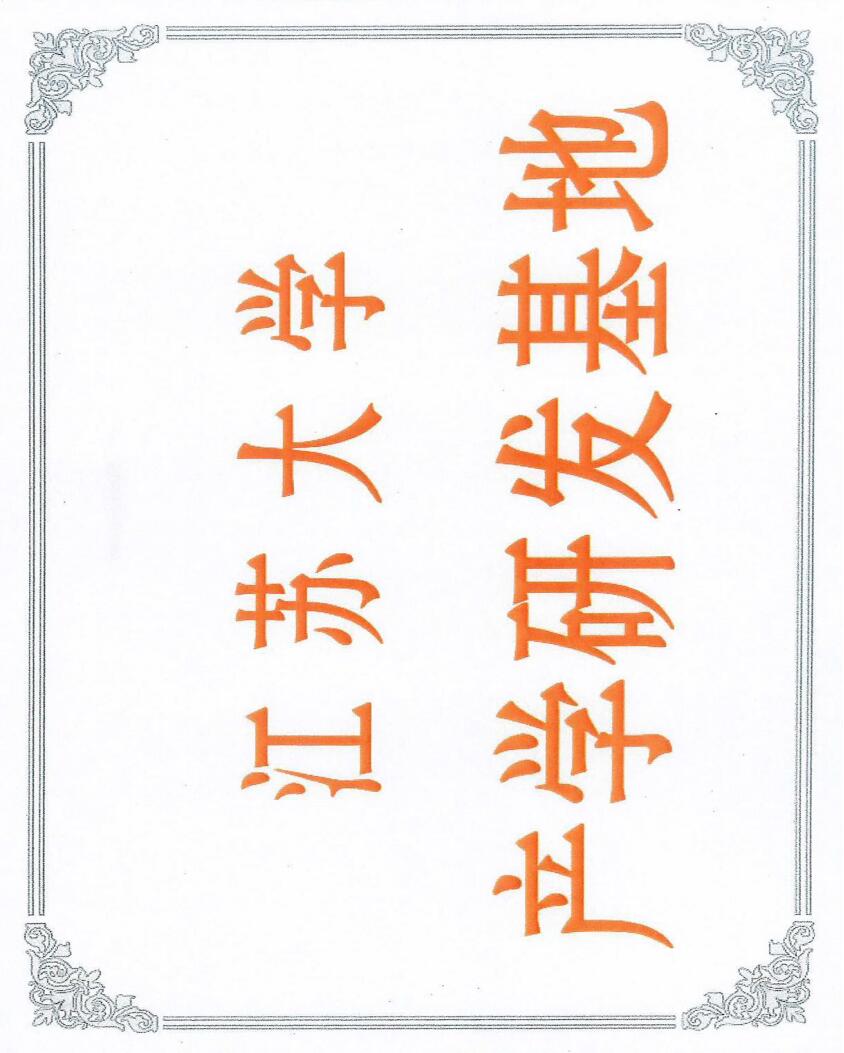 江苏大学
产学研发基地